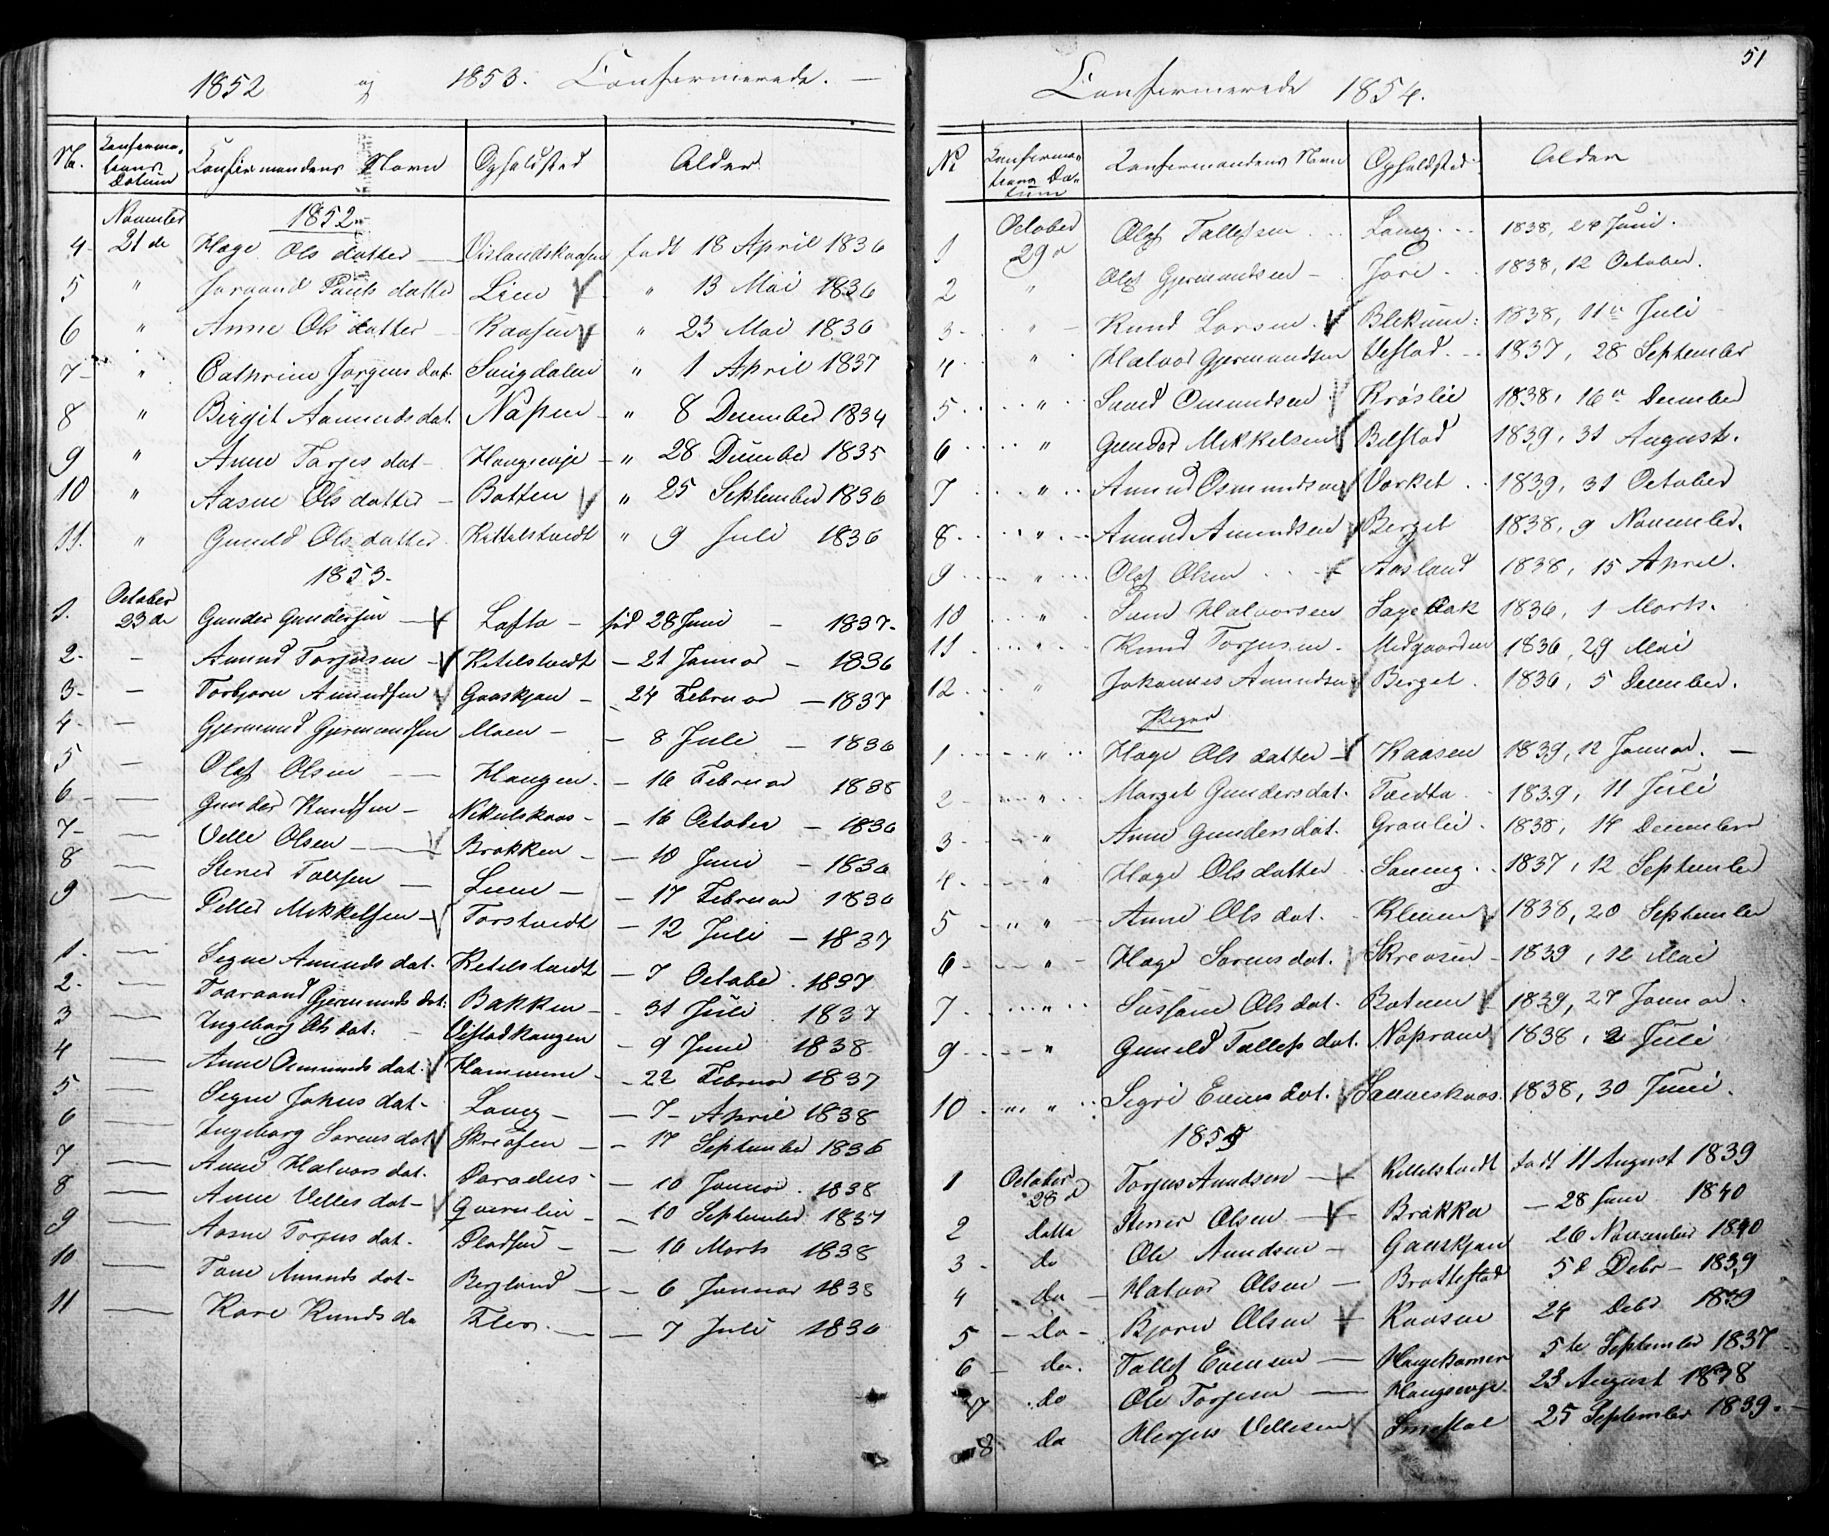 1852 og 1853. Confirmerede. —
No. Confirma- tions Datum Confirmandens Navn Opholdsted Alder
November 1852
4 - 21de Hæge Olsdatter — Vislandskaasen født 18 April 1836
5 " Joraand Pauls datter Lien " 13 Mai 1836
6 " Anne Olsdatter - Kaasen " 23 Mai 1836
7 - " Cathrine Jørgensdat. Songdalen " 1 April 1837
8 " Birgit Aamundsdat. Napen - " 8 December 1834
9 " Anne Tarjesdat - Haugsvje - " 28 December 1835
10 " Aasne Olsdatter - Botten " 25 September 1836
11. " Gunild Olsdatter Kittelstvedt " 9 Juli 1836
1853.
1. October 23de Gunder Gundersen — Lofto - fød 28 Juni - 1837.
2. - Amund Torjusen - Ketelstvedt - 21 Januar - 1836
3. - Torbjørn Amundsen Gaaskjen - - 24 Februar - 1837
4 - - Gjermund Gjermundsen Moen - - 8 Juli - 1836
5 - Olaf Olsen — Haugen. - 16 Februar 1838
6 - — Gunder Knudsen - Nikulskaas - - 16 October - 1836
7 - — Velle Olsen — Brakken - - 10 Juni - 1836
8 — Stener Tollefsen — Liene - - 17 Februar 1836
9 — Petter Mikkelsen - Torstvedt - 12 Juli - 1837
1. — Segne Amundsdat. Ketelstvedt - 7 October 1837
2. — Taaraand Gjermundsdat. Bakken - - 31 Juli 1837
3 — Ingeborg Olsdat. Vestadhaugen - 9 June 1838
4 — Anne Osmundsdat. Hammeren - - 22 Februar 1837
5 — Segne Johnsdat - Laag - - 7 - April 1838
6 — Ingeborg Sørensdat Skreosen - - 17 September 1836
7 — Anne Halvorsdat. Paradis - - 10 Januar. 1838
8 — Anne Vellesdat - Qvernlien - - 10 September 1837
9 — Aasne Torjusdat. Pladsen - - 16 Marts 1838
10 — Tone Amundsdat - Bergland - - 6 Januar 1838
11 — Kare Knudsda Flere. - - 7 Juli 1836
51
Confirmerede 1854.
No Confirma- tions Da- tum Confirmandens Navn Opholdsted Alder
1 October 29de Olaf Tallefsen Laug. 1838, 24 Juni.
2 " Olaf Gjermundsen - Jore 1838, 12 October.
3 " Knud Larsen. Blekum: 1838, 11te Juli
4 " Halvor Gjermundsen Vefstad. 1837, 28 September
5 " Svend Omundsen Krøslie 1838, 16de December
6 " Gunder Mikkelsen Belstad 1839, 31 August.
7 " Amund Osmundsen Vorket 1839, 31 October
8 " Amund Amundsen Berget 1838, 9 November.
9 " Olaf Olsen Aasland 1838, 15 April.
10 " Halvorsen Sagebak 1836, 1 Marts.
11 " Knud Torjusen. Midgaarden 1836, 29 Mai
12 " Johannes Amundsen Berget. 1836, 5 December.
Piger
1 " Hage Olsdatter - Kaasen 1839, 12 Januar. —
2 " Margit Gundersdat. Tvedta 1839, 11 Juli
3 - " Anne Gundersdat. Graalei. 1838, 14 December
4 " Hage Olsdatter Sannes. 1837, 12 September
5 " Anne Olsdat. Kleiven 1838, 20 September
6 " Hage Sørensdat. Skreosen 1839, 12 Mai
7 " Sussane Olsdat. Botnen 1839, 27 Januar.
9 " Gunild Tallefsdat. Naprane 1838, 2 Juli
10 " Segri Evensdat. Sanneskaas. 1838, 30 Juni.
1855
1 October 28de Torjus Amundsen — Kittelstvedt født 11 August 1839
2 Datto Stener Olsen — Brakka - 28 Juni 1840
3 - do Ole Amundsen - Gaaskjen 26 November 1840
4 do Halvor Olsen — Brottestad 5te Debr - 1839
5 - do - Bjorn Olsen Kaasen 24 Debr 1839
6 - do. Tallef Evensen — Haugekamen 5te September 1837
7 do Ole Torjusen — Haugsvje. 23 August 1838
8. do Herjus Vellesen Smestal 25 September 1839.